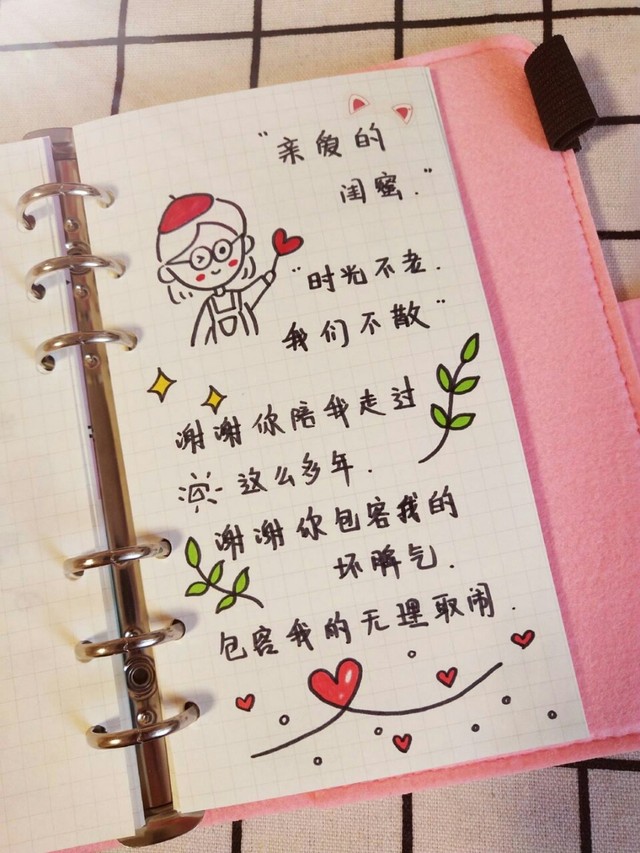 "亲爱的
闺蜜."
"时光不老.
我们不散"
谢谢你陪我走过
这么多年.
谢谢你包容我的
坏脾气.
包容我的无理取闹.